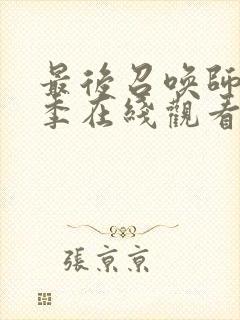 最後召喚師
季在綫觀看
張京京